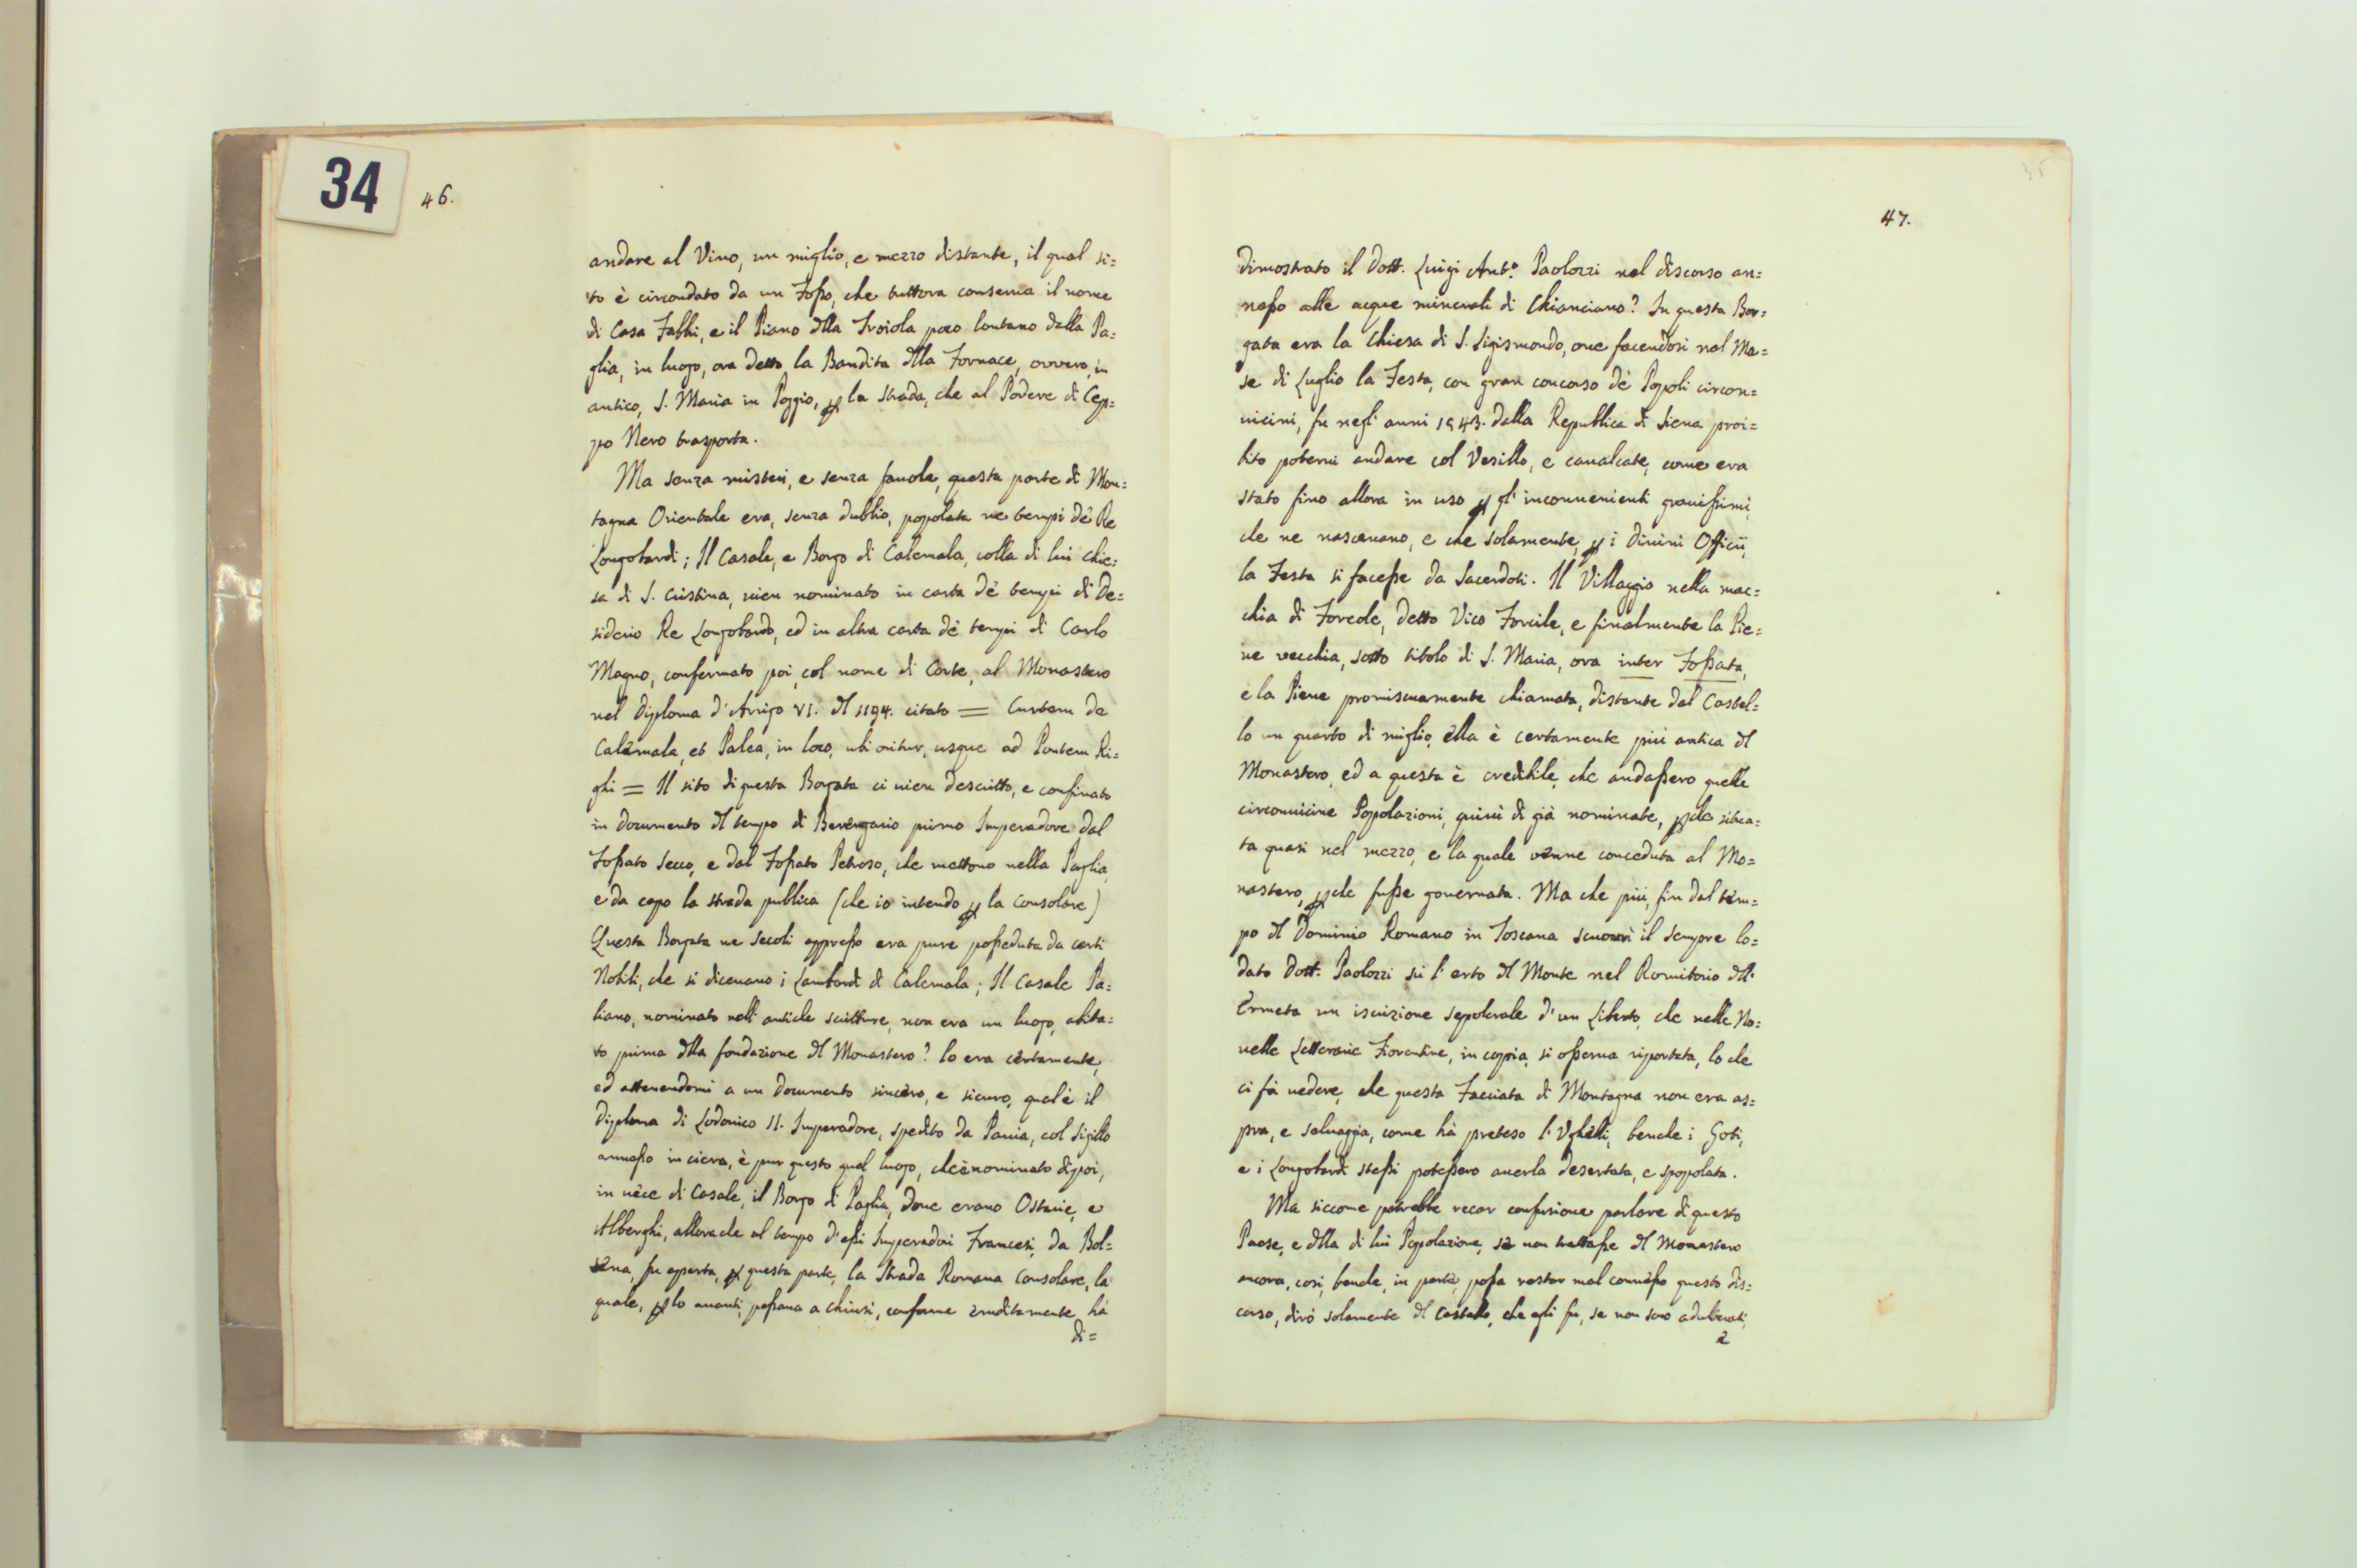 34
46.
andare al Vivo, un miglio, e mezzo distante, il qual si=
to è circondato da un Foßo, che tuttora conserua il nome
di Casa Fabbi, e il Piano dlla Troiola poco lontano dalla Pa=
glia, in luogo, ora detto la Bandita dlla Fornace, ovvero, in
antico, S. Maria in Poggio, ꝑ la strada, che al Podere di Cep=
po Nero trasporta.
Ma senza misteri, e senza fauole, questa parte di Mon=
tagna Orientale era, senza dubbio, popolata ne tempi dè Re
Longobardi; Il Casale, e Borgo di Calemala, colla di lui chie=
sa di S. Cristina, uien nominato in carta dè tempi di De=
siderio Re Longobardo, ed in altra carta dè tempi di Carlo
Magno, confermato poi, col nome di Corte, al Monastero
nel Diploma d'Arrigo VI. dl 1194. citato = Curtem de
Calemala, et Palea, in loco, ubi oritur, usque ad Pontem Ri=
ghi = Il sito di questa Borgata ci uien descritto, e confinato
in documento dl tempo di Berengario primo Imperadore dal
Foßato Secco, e dal Foßato Petroso, che mettono nella Paglia,
e da capo la strada publica (che io intendo ꝑ la Consolare)
Questa Borgata ne secoli appreßo era pure poßeduta da certi
Nobili, che si diceuano i Lambardi di Calemala; Il Casale Pa=
liano, nominato nell' antiche scritture, non era un luogo, abita=
to prima dlla fondazione dl Monastero? lo era certamente,
ed attenendomi a un documento sincero, e sicuro, qual'è il
Diploma di Lodouico II. Imperadore, spedito da Pauia, col Sigillo
anneßo in ciera, è pur questo quel luogo, che è nominato dipoi,
in uece di Casale, il Borgo di Paglia, doue erano Osterie, e
Alberghi, allorache al tempo d'eßi Imperadori Francesi, da Bol=
sena, fu aperta, ꝑ questa parte, la Strada Romana Consolare, la
quale, ꝑ lo auanti, paßaua a Chiusi, conforme eruditamente hà
di=
35
47.
dimostrato il Dott. Luigi Ant.º Paolozzi nel discorso an=
neßo alle acque minerali di Chianciano? In questa Bor=
gata era la Chiesa di S. Sigismondo, oue facendosi nel Me=
se di Luglio la Festa, con gran concorso dè Popoli circon=
uicini, fu negl' anni 1543. dalla Republica di Siena proi=
bito poterui andare col Vesillo, e caualcate, come era
stato fino allora in uso ꝑ gl' inconuenienti grauißimi,
che ne nasceuano, e che solamente, ꝑ i Diuini Officii,
la Festa si faceße da Sacerdoti. Il Villaggio nella mac=
chia di Forcole, detto Vico Forcile, e finalmente la Pie=
ue vecchia, sotto titolo di S. Maria, ora inter Foßata,
e la Pieue promiscuamente chiamata, distante dal Castel=
lo un quarto di miglio, ella è certamente più antica dl
Monastero, ed a questa è credibile, che andaßero quelle
circonuicine Popolazioni, quiui di già nominate, ꝑche situa=
ta quasi nel mezzo, e la quale venne conceduta al Mo=
nastero, ꝑche fuße gouernata. Ma che più, fin dal tem=
po dl Dominio Romano in Toscana scuoprì il sempre lo=
dato Dott. Paolozzi sù l' erto dl Monte nel Romitorio dll'
Ermeta un iscrizione sepolcrale d'un Liberto, che nelle No=
uelle Letterarie Fiorentine, in copia, si oßerua riportata, lo che
ci fà uedere, che questa Facciata di Montagna non era as=
pra, e seluaggia, come hà preteso l'Ughelli, benche i Goti,
e i Longobardi steßi poteßero auerla desertata, e spopolata.
Ma siccome potrebbe recar confusione parlare di questo
Paese, e dlla di lui Popolazione, se non trattaße dl Monastero
ancora, così, benche, in parte, poßa restar mal conneßo questo dis=
corso, dirò solamente dl Castello, che egli fu, se non sono adulterati,
e